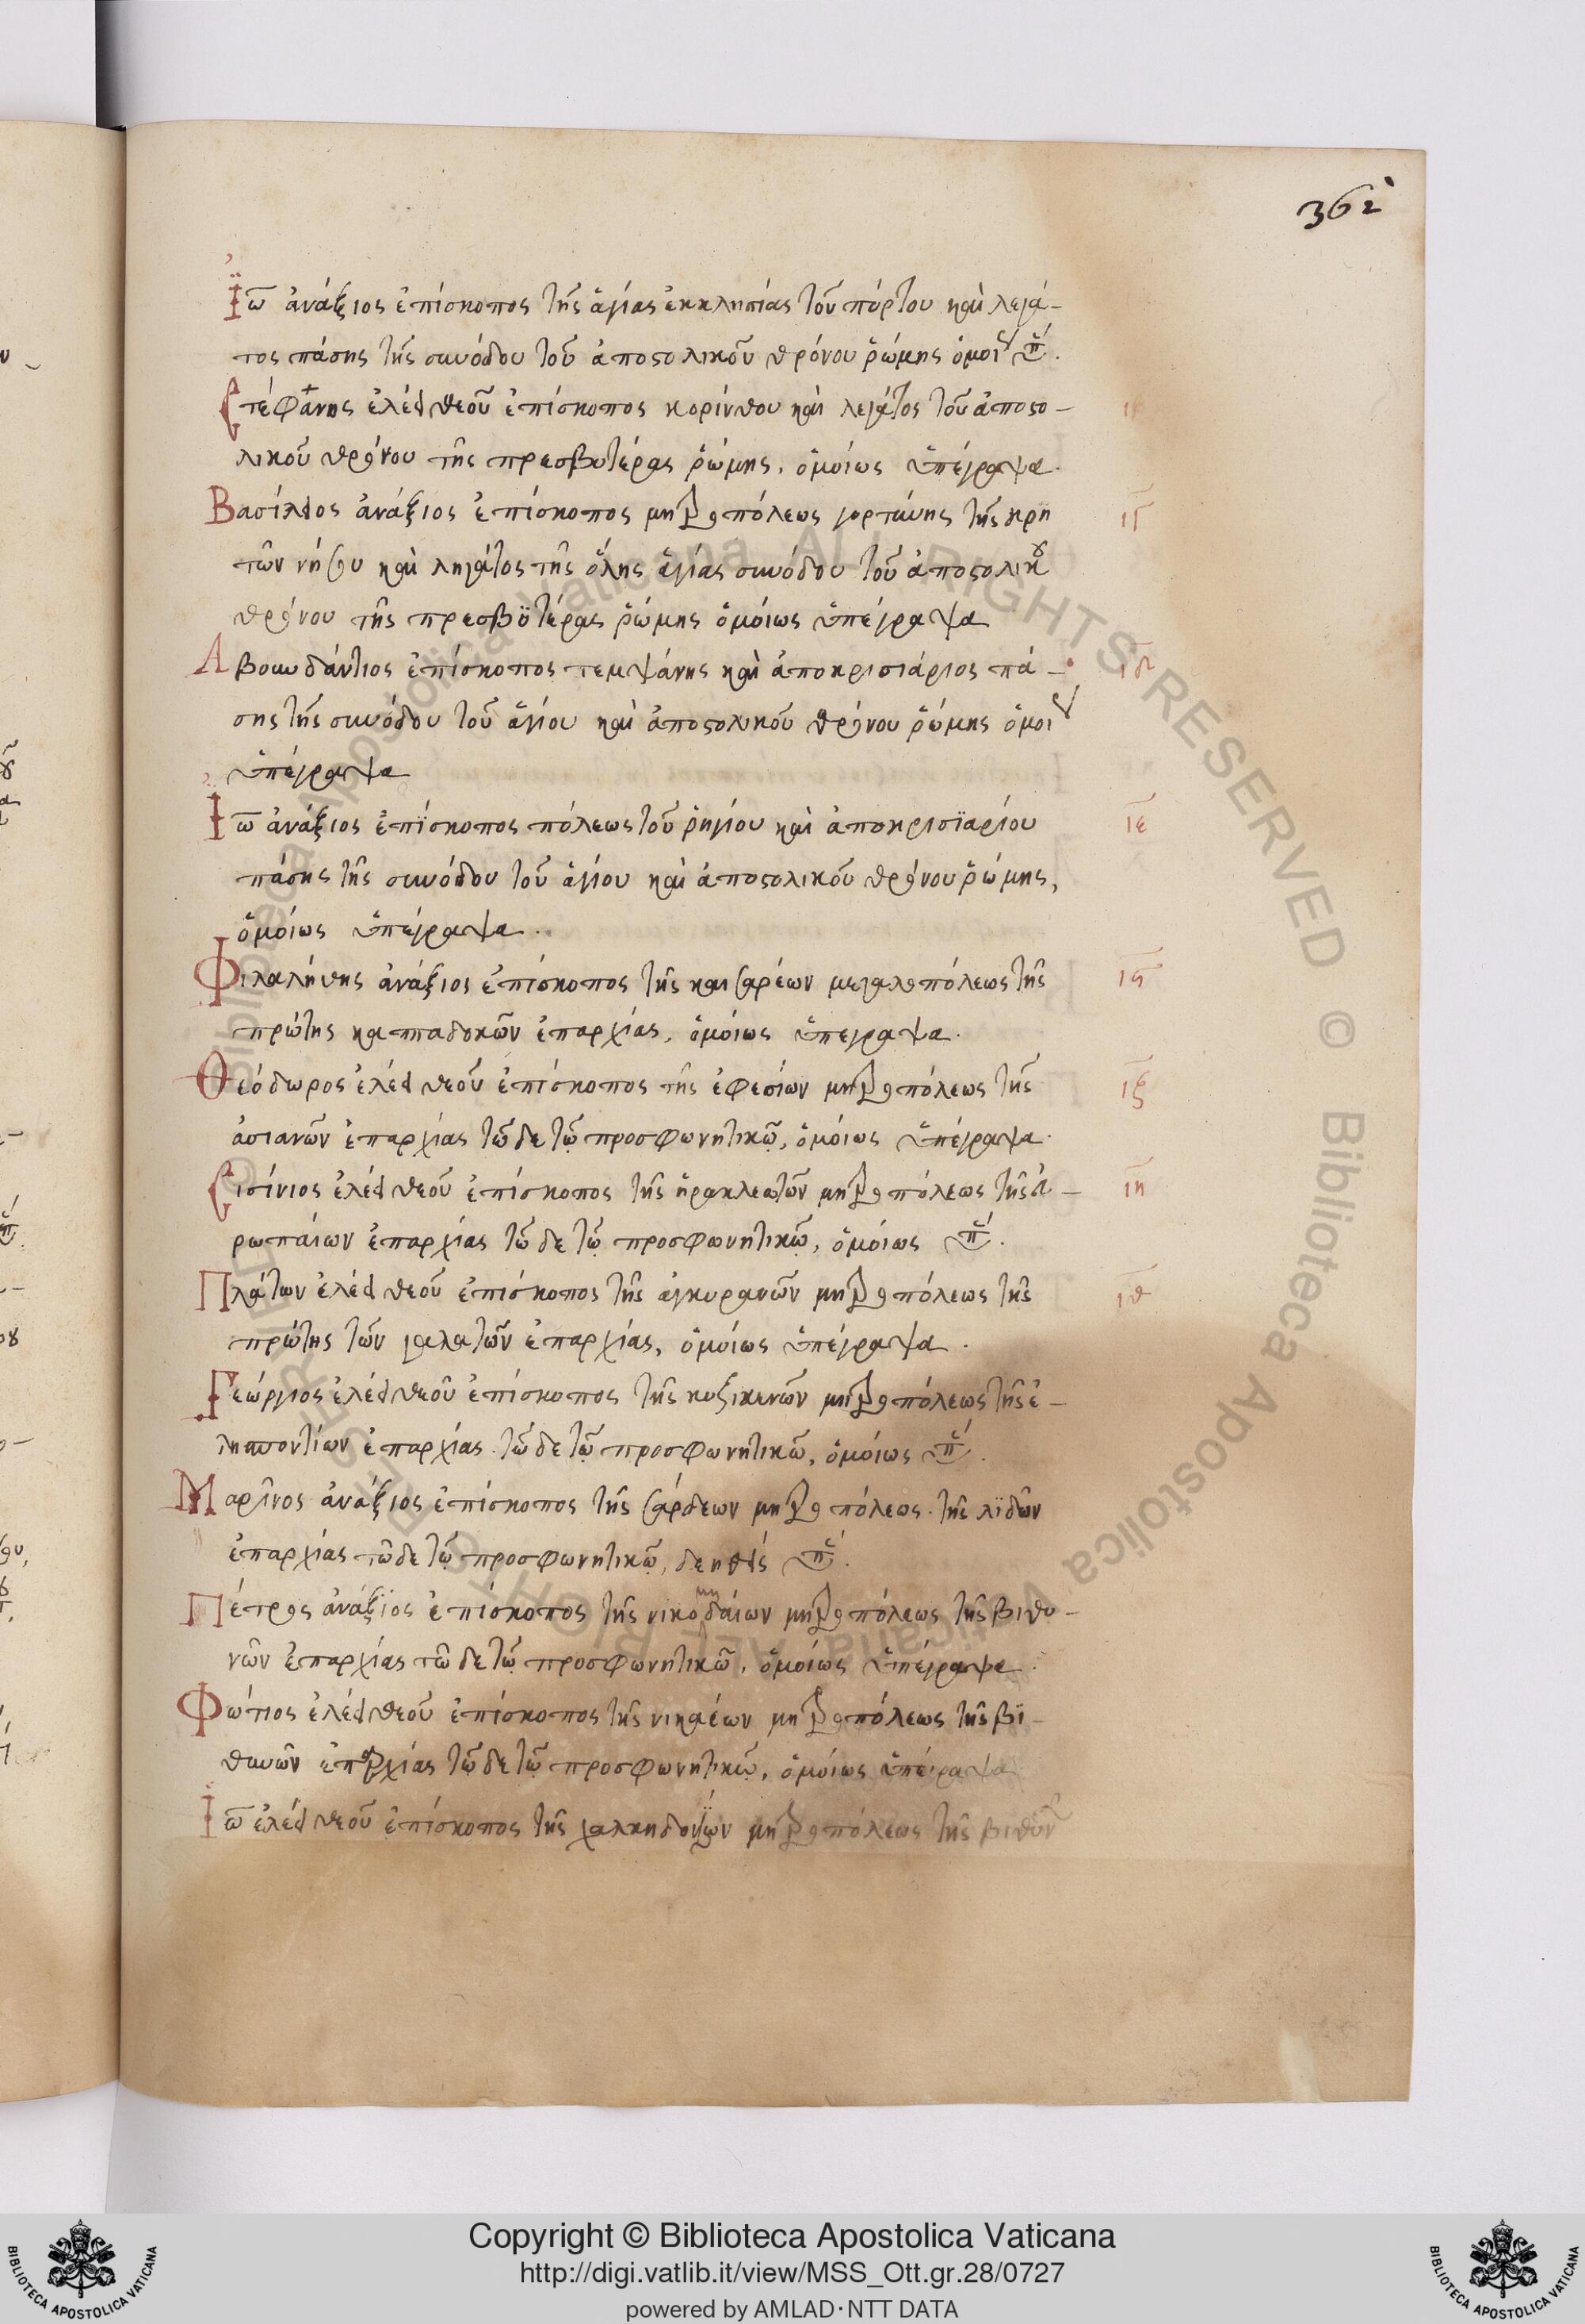 362
Ἰω ἀνάξιος ἐπίσκοπος τῆς ἁγίας ἐκκλησίας τοῦ πόρτου καὶ λεγά-
τος πάσης τῆς συνόδου τοῦ ἀποστολικοῦ θρόνου ῥώμης ὁμοί ὑπ.
Στέφανης ἐλέει θεοῦ ἐπίσκοπος κορίνθου καὶ λεγάτος τοῦ ἀποστο-
λικοῦ θρόνου τῆς πρεσβυτέρας ῥώμης, ὁμοίως ὑπέγραψα.
Βασίλειος ἀνάξιος ἐπίσκοπος μητροπόλεως γορτύνης τῆς κρη ιγ
τῶν νήσου καὶ ληγάτος τῆς ὅλης ἁγίας συνόδου τοῦ ἀποστολικοῦ
θρόνου τῆς πρεσβϋτέρας ῥώμης ὁμοίως ὑπέγραψα
Ἀβουνδάντιος ἐπίσκοπος τεμψάνης καὶ ἀποκρισιάριος πά- ιδ
σης τῆς συνόδου τοῦ ἁγίου καὶ ἀποστολικοῦ θρόνου ῥώμης ὁμοί
ὑπέγραψα
Ἰω ἀνάξιος ἐπίσκοπος πόλεως τοῦ ῥηγίου καὶ ἀποκρισϊαρίου ιε
πάσης τῆς συνόδου τοῦ ἁγίου καὶ ἀποστολικοῦ θρόνου ῥώμης,
ὁμοίως ὑπέγραψα.
Φιλαλήθης ἀνάξιος ἐπίσκοπος τῆς καισαρέων μεγαλοπόλεως τῆς ιϛ
πρώτης καππαδοκῶν ἐπαρχίας, ὁμοίως ὑπεγραψα.
Θεόδωρος ἐλέει θεοῦ ἐπίσκοπος τῆς ἐφεσίων μητροπόλεως τῆς ιζ
ἀσιανῶν ἐπαρχίας τῶδε τῷ προσφωνητικῷ, ὁμοίως ὑπέγραψα.
Σισίνιος ἐλέει θεοῦ ἐπίσκοπος τῆς ἡρακλεωτῶν μητροπόλεως τῆς εὐ- ιη
ρωπαίων ἐπαρχίας τῶδε τῷ προσφωνητικῷ, ὁμοίως ὑπ.
Πλάτων ἐλέει θεοῦ ἐπίσκοπος τῆς ἀγκυρανῶν μητροπόλεως τῆς ιθ
πρώτης τῶν γαλατῶν ἐπαρχίας, ὁμοίως ὑπέγραψα.
Γεώργιος ἐλέει θεοῦ ἐπίσκοπος τῆς κυζικενῶν μητροπόλεως τῆς ἐ-
λησποντίων ἐπαρχίας. τῶδε τῷ προσφωνητικῷ, ὁμοίως ὑπ.
Μαρῖνος ἀνάξιος ἐπίσκοπος τῆς σάρδεων μητροπόλεως. τῆς λϊδῶν
ἐπαρχίας τῶδε τῷ προσφωνητικῷ, δεηθείς ὑπ.
Πέτρος ἀνάξϊος ἐπίσκοπος τῆς νικομηδαίων μητροπόλεως τῆς βιθυ-
νῶν ἐπαρχίας τῶδε τῷ προσφωνητικῷ, ὁμοίως ὑπέγραψα.
Φώτιος ἐλέει θεοῦ ἐπίσκοπος τῆς νικαέων μητροπόλεως τῆς βϊ-
θυνῶν ἐπαρχίας τῶδε τῷ προσφωνητικῷ, ὁμοίως ὑπέγραψα
Ἰω ἐλέει θεοῦ ἐπίσκοπος τῆς χαλκηδονίων μητροπόλεως τῆς βιθυν
Copyright © Biblioteca Apostolica Vaticana
http://digi.vatlib.it/view/MSS_Ott.gr.28/0727
powered by AMLAD·NTT DATA